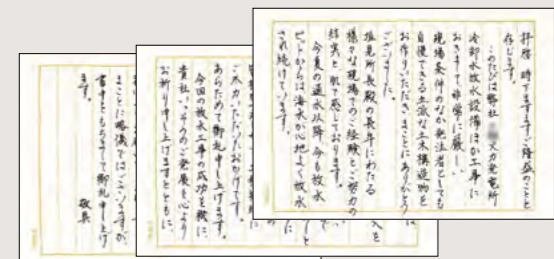 拝啓 時下ますますご隆盛のことと
存じます。
このたびは弊社 火力発電所
冷却水放水設備ほか工事に
おきまして非常に厳しい
現場条件のなか発注者としても
自慢できる立派な土木構造物を
お作りいただきまことにありがとう
ございました。
塩見所長殿の長年にわたる
様々な現場でのご経験とご努力の
結実と肌で感じております。
今夏の通水以降、今も放水
ピットからは海水が心地よく放水
され続けています。
ご尽力いただいたおかげです。
あらためて御礼申し上げます。
今回の放水工事の成功を機に、
貴社いっそうのご発展を心より
お祈り申し上げますとともに、
まことに略儀ではございますが、
書中をもちまして御礼申し上げ
ます。
敬具